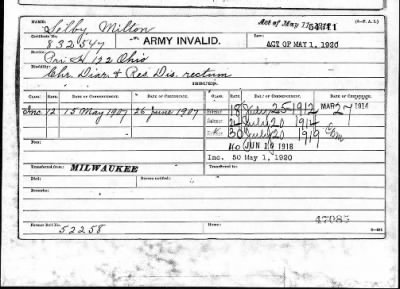 NAME:
Selby Milton
Act of May 11
(3-F. A. I.)
Certificate No.
832.547
ARMY INVALID.
Law:
ACT OF MAY 1, 1920
Service:
Pri H, 122 Ohio
Disability:
Chr. Diar. & Res. Dis. rectum
CLASS. RATE. DATE OF COMMENCEMENT. DATE OF CERTIFICATE. CLASS. RATE. DATE OF COMMENCEMENT. DATE OF CERTIFICATE.
Inc 12 15 May 1907 26 June 1907
18 July 25 1912 MAR 27 1914
24 July 20 1914
30 July 20 1919
40 JUN 10 1918
Inc. 50 May 1, 1920
Fees:
Transferred from:
MILWAUKEE
Transferred to:
Died:
Reissued:
Remarks:
47085
Former Roll No.
52258
Home: